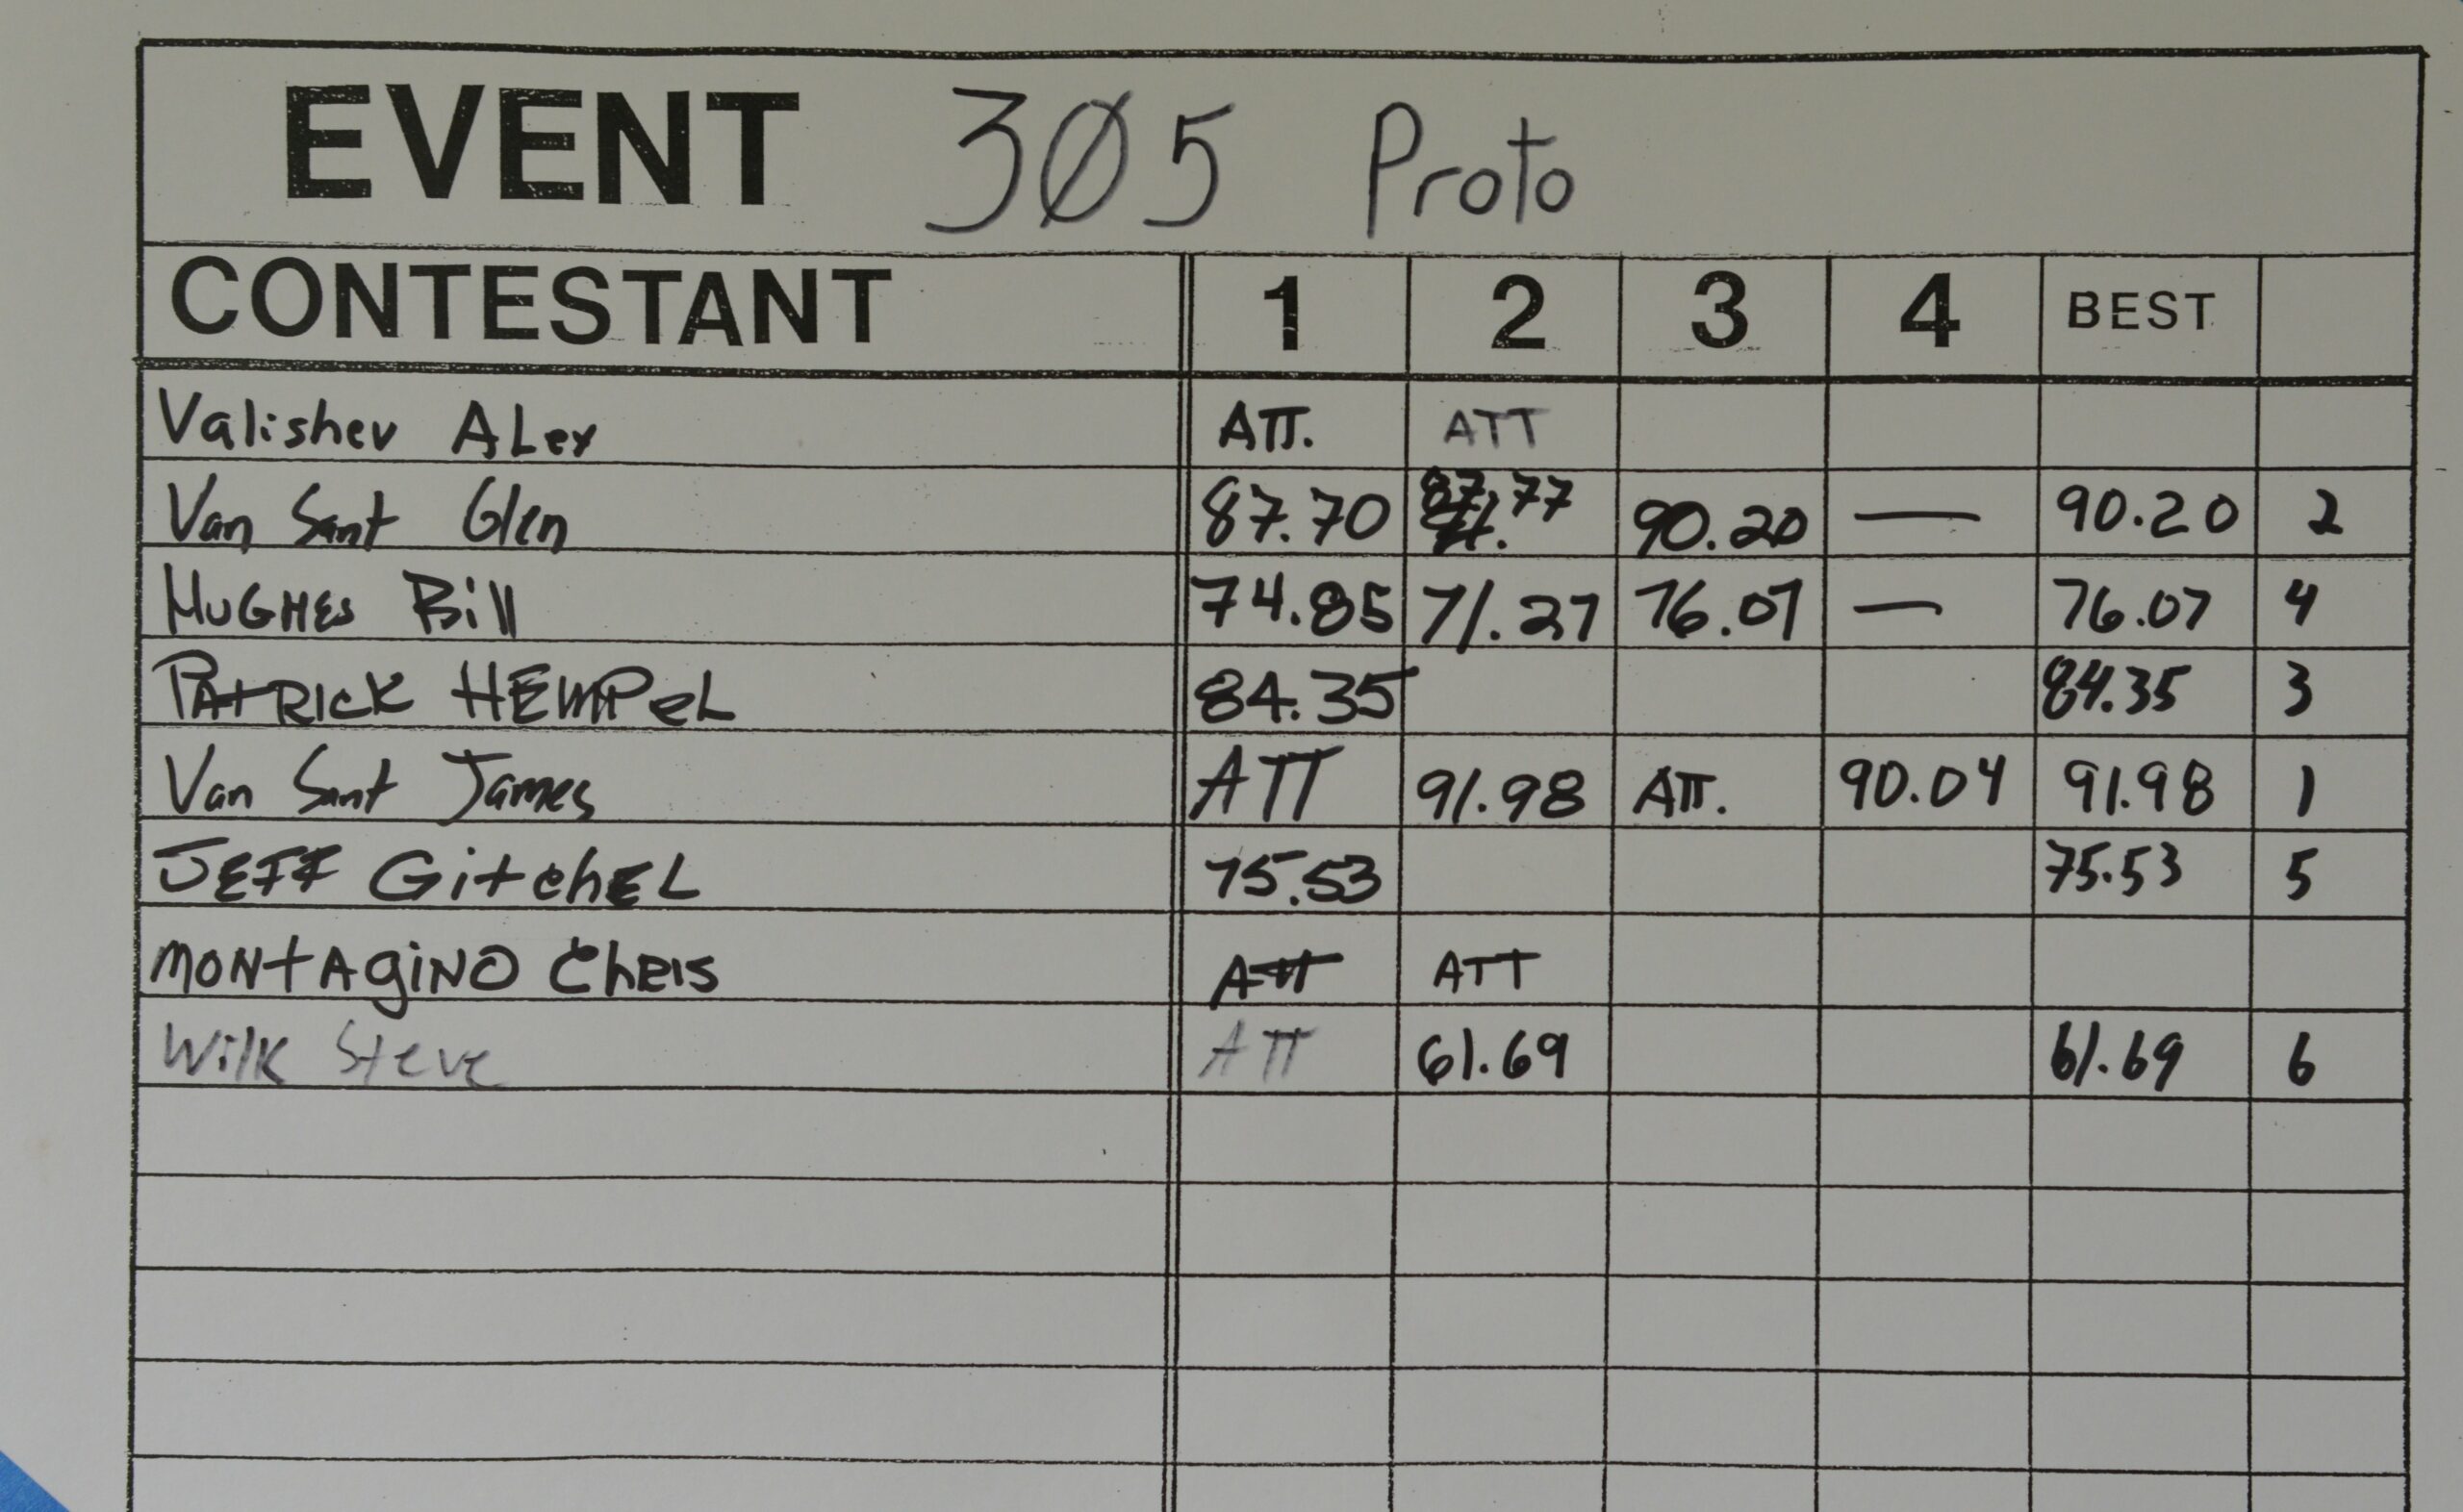 EVENT 3Ø5 Proto
CONTESTANT 1 2 3 4 BEST
Valishev ALex ATT. ATT
Van Sant Glen 87.70 87.77 90.20 — 90.20 2
HUGHES Bill 74.85 71.27 76.07 — 76.07 4
PATRICK HEMPEL 84.35 84.35 3
Van Sant James ATT 91.98 ATT. 90.04 91.98 1
JEFF GitchEL 75.53 75.53 5
MONTAgiNO ChRIS ATT ATT
Wilk Steve ATT 61.69 61.69 6